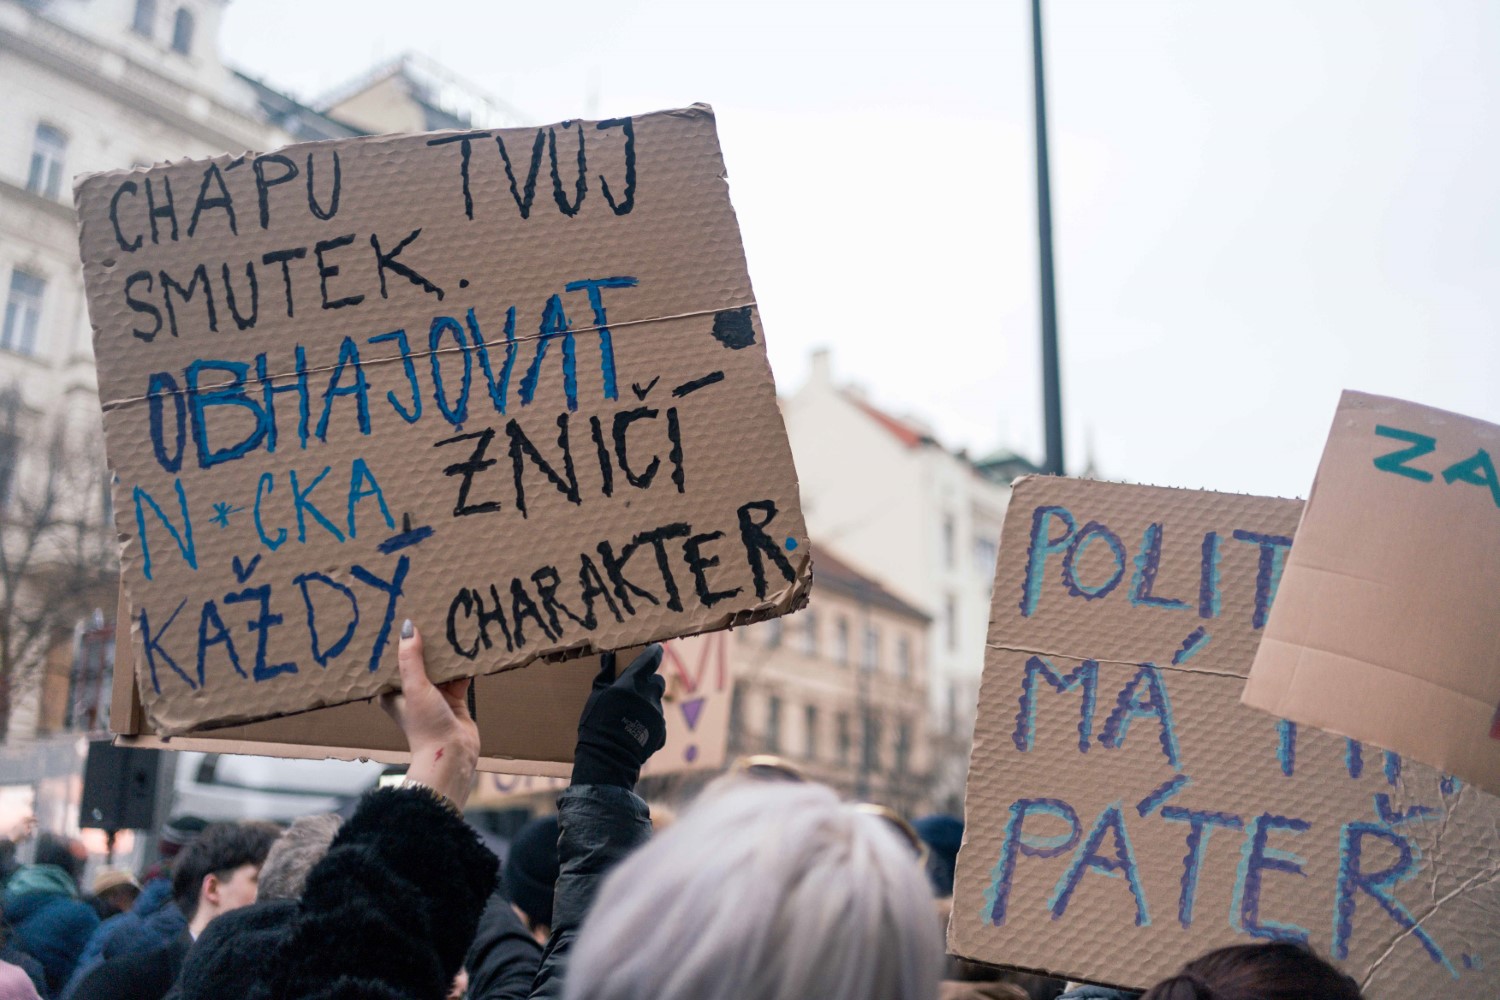 CHÁPU TVŮJ
SMUTEK.
OBHAJOVAT
N*CKA ZNIČÍ
KAŽDÝ CHARAKTER.
POLIT
MÁ
PÁTEŘ.
ZA